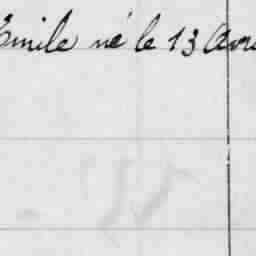 Emile né le 13 Avri